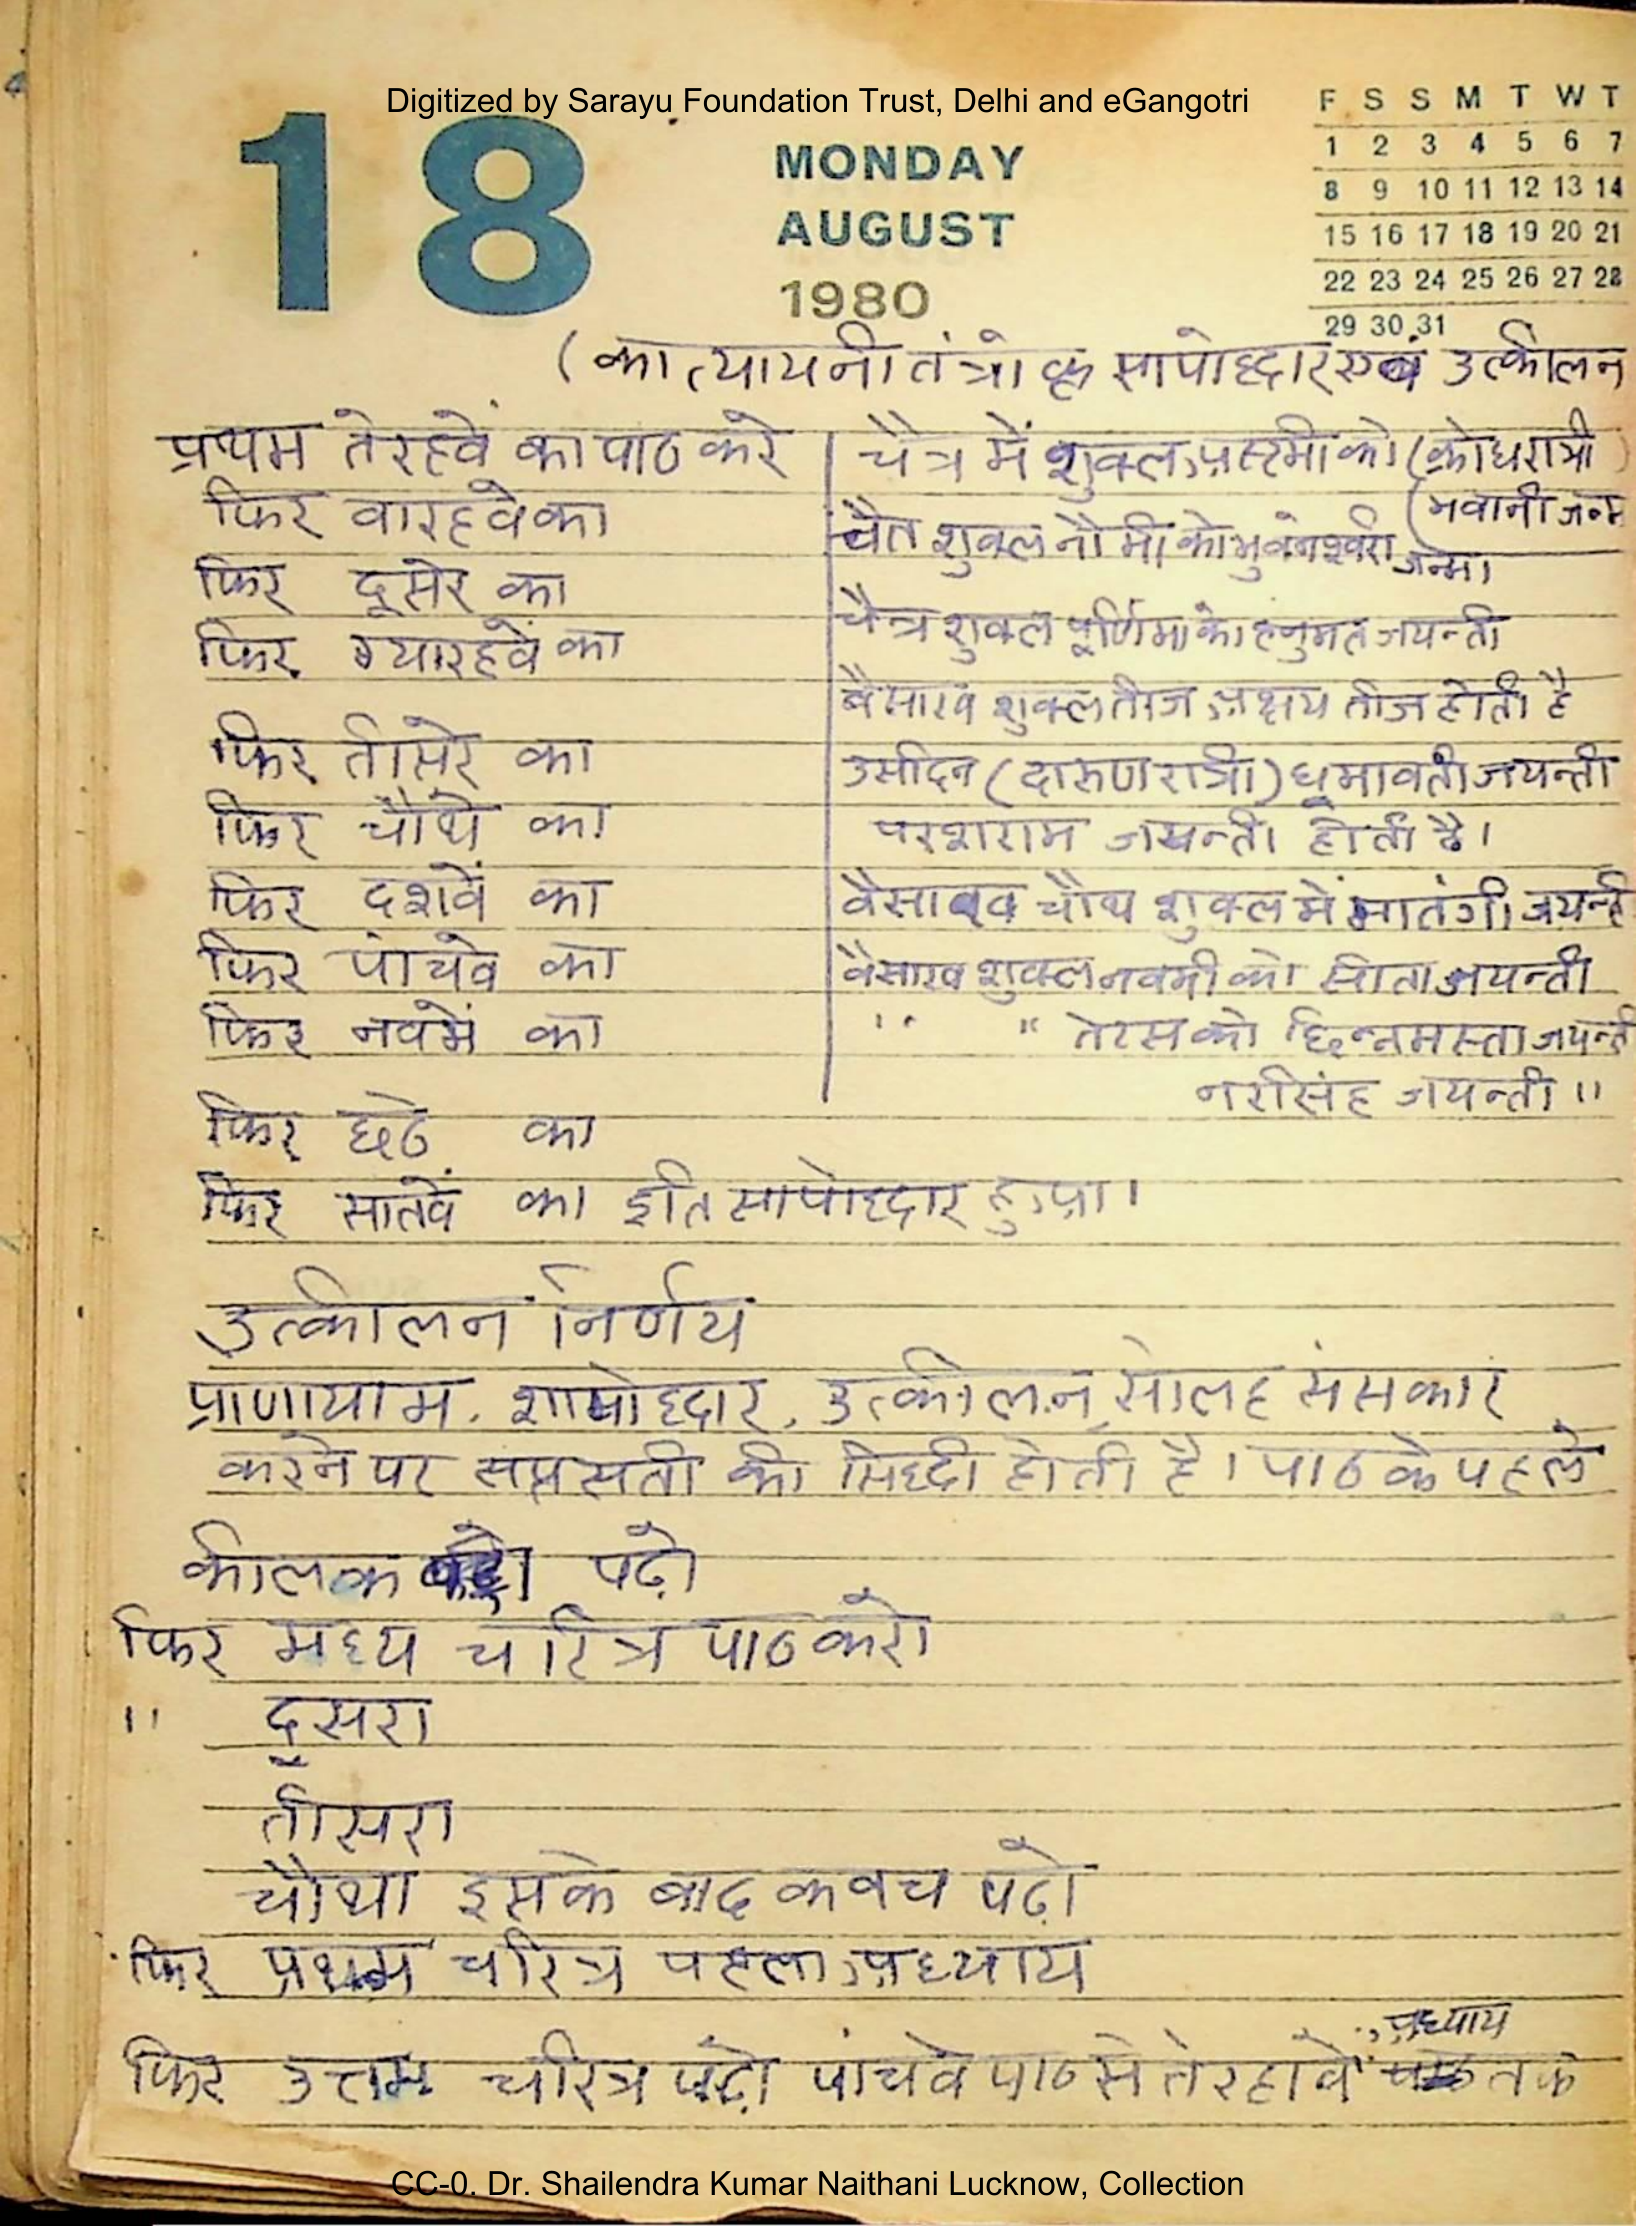 Digitized by Sarayu Foundation Trust, Delhi and eGangotri
18
MONDAY
AUGUST
1980
F S S M T W T
1 2 3 4 5 6 7
8 9 10 11 12 13 14
15 16 17 18 19 20 21
22 23 24 25 26 27 28
29 30 31
(कात्यायनी तंत्रोक्त सापोद्धार एवं उत्कीलन
प्रथम तेरहवें का पाठ करे
फिर वारहवे का
फिर दूसरे का
फिर ग्यारहवें का
फिर तीसरे का
फिर चौथे का
फिर दशवें का
फिर पांचवे का
फिर नवमें का
फिर छठे का
फिर सातवें का इति सापोद्धार हुआ।
चैत्र में शुक्ल अष्टमी को (क्रोधरात्री)
(भवानी जन्म
चैत शुक्ल नौमी को भुवनेश्वरी जन्म।
चैत्र शुक्ल पूर्णिमा को हनुमत जयन्ती
बैसाख शुक्ल तीज अक्षय तीज होती है
उसीदिन (दारुणरात्री) धूमावती जयन्ती
परशराम जयन्ती होती है।
वैसाख चौथ शुक्ल में मातंगी जयन्ती
वैसाख शुक्ल नवमी को सीता जयन्ती
" " तेरस को छिन्नमस्ता जयन्ती
नरसिंह जयन्ती ॥
उत्कीलन निर्णय
प्राणायाम, शापोद्धार, उत्कीलन, सोलह संसकार
करने पर सप्तसती की सिद्धी होती है। पाठ के पहले
कीलक पढ़ो
फिर मध्य चरित्र पाठ करो
" दूसरा
तीसरा
चौथा इसके बाद कवच पढ़ो
फिर प्रथम चरित्र पहला अध्याय
फिर उत्तम चरित्र पढ़ो पांचवे पाठ से तेरहावे अध्याय तक
CC-0. Dr. Shailendra Kumar Naithani Lucknow, Collection